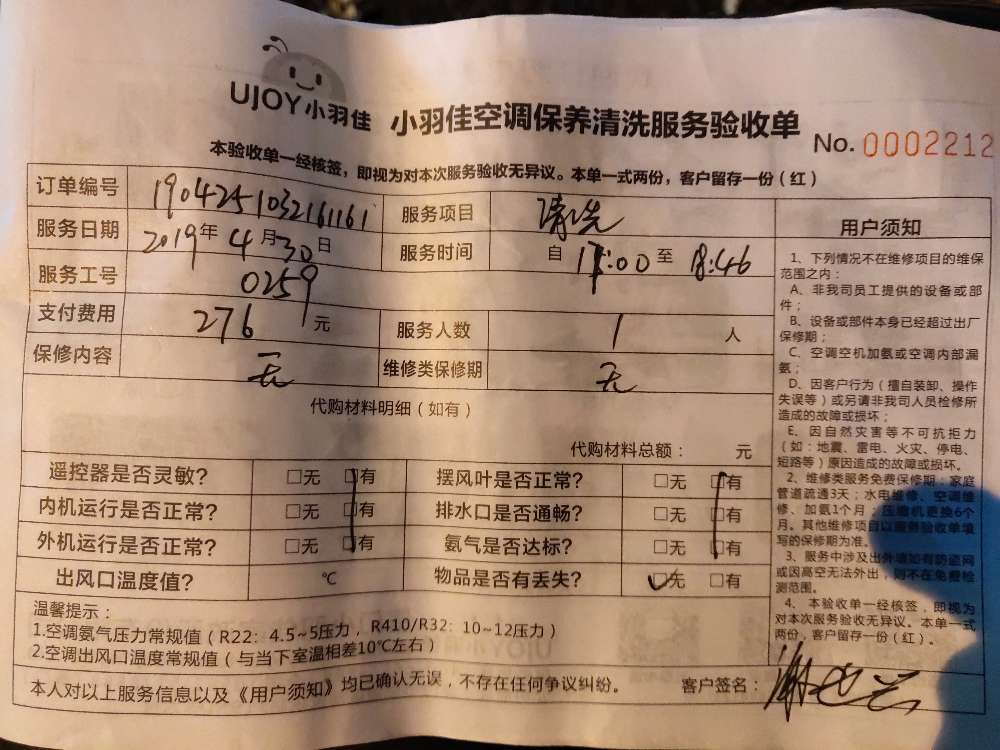 UJOY小羽佳
小羽佳空调保养清洗服务验收单
No. 0002212
本验收单一经核签，即视为对本次服务验收无异议。本单一式两份，客户留存一份（红）
订单编号 1904251032161161 服务项目 清洗
服务日期 2019年4月30日 服务时间 自 17:00 至 18:46
服务工号 0259
支付费用 276 元 服务人数 1 人
保修内容 无 维修类保修期 无
代购材料明细（如有）
代购材料总额： 元
遥控器是否灵敏? □无 □有 摆风叶是否正常? □无 □有
内机运行是否正常? □无 □有 排水口是否通畅? □无 □有
外机运行是否正常? □无 □有 氨气是否达标? □无 □有
出风口温度值? ℃ 物品是否有丢失? ☑无 □有
温馨提示：
1.空调氨气压力常规值（R22：4.5~5压力，R410/R32：10~12压力）
2.空调出风口温度常规值（与当下室温相差10℃左右）
本人对以上服务信息以及《用户须知》均已确认无误，不存在任何争议纠纷。 客户签名：
用户须知
1、下列情况不在维修项目的维保
范围之内：
A、非我司员工提供的设备或部
件；
B、设备或部件本身已经超过出厂
保修期；
C、空调空机加氨或空调内部漏
氨；
D、因客户行为（擅自装卸、操作
失误等）或另请非我司人员检修所
造成的故障或损坏；
E、因自然灾害等不可抗拒力
（如：地震、雷电、火灾、停电、
短路等）原因造成的故障或损坏。
2、维修类服务免费保修期：家庭
管道疏通3天；水电维修、空调维
修、加氨1个月；压缩机更换6个
月。其他维修项目以服务验收单填
写的保修期为准。
3、服务中涉及出外墙如有防盗网
或因高空无法外出，则不在免费检
测范围。
4、本验收单一经核签，即视为
对本次服务验收无异议。本单一式
两份，客户留存一份（红）。